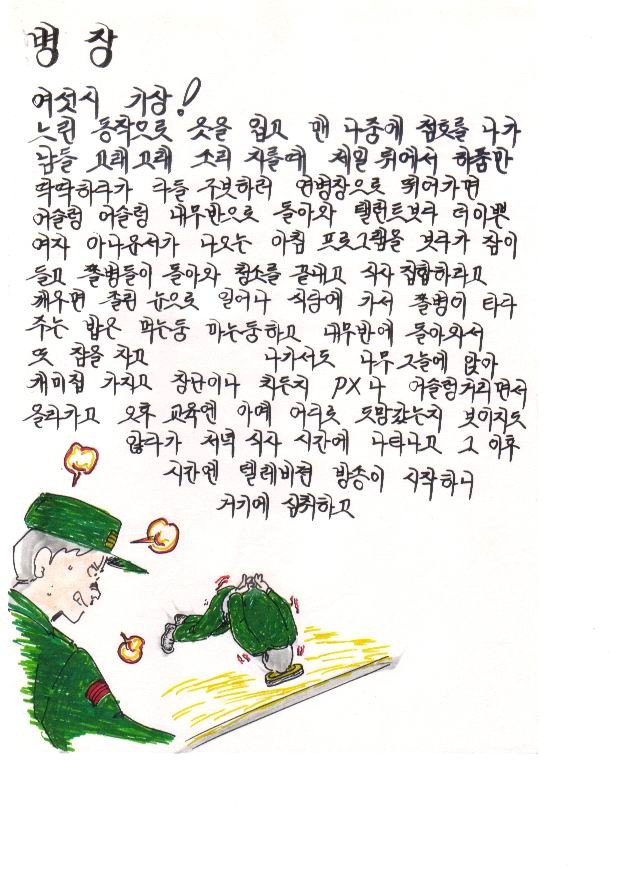 병장
여섯시 기상!
느린 동작으로 옷을 입고 맨 나중에 점호를 나가
남들 고래고래 소리 지를때 제일 뒤에서 하품만
딱딱하다가 다들 구보하러 연병장으로 뛰어가면
어슬렁 어슬렁 내무반으로 돌아와 탤런트보다 더이쁜
여자 아나운서가 나오는 아침 프로그램을 보다가 잠이
들고 쫄병들이 돌아와 청소를 끝내고 식사집합하라고
깨우면 졸린 눈으로 일어나 식당에 가서 쫄병이 타다
주는 밥은 먹는둥 마는둥하고 내무반에 돌아와서
또 잠을 자고 나가서도 나무그늘에 앉아
개미집 가지고 장난이나 치든지 PX나 어슬렁거리면서
올라가고 오후 교육엔 아예 어디로 도망갔는지 보이지도
않다가 저녁 식사 시간에 나타나고 그 이후
시간엔 텔레비젼 방송이 시작하니
거기에 심취하고